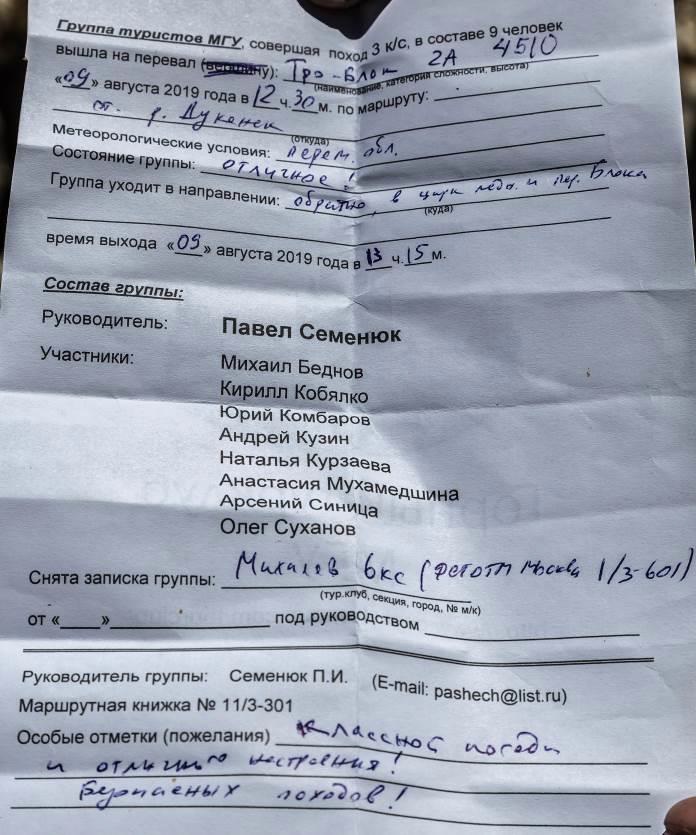 Группа туристов МГУ, совершая поход 3 к/с, в составе 9 человек
вышла на перевал (вершину): Тро-Блок 2А 4510
(наименование, категория сложности, высота)
«09» августа 2019 года в 12 ч. 30 м. по маршруту:
ст. р. Дукенек
(откуда)
Метеорологические условия: перем. обл.
Состояние группы: отличное!
Группа уходит в направлении: обратно, в цирк ледн. и пер. Блока
(куда)
время выхода «09» августа 2019 года в 13 ч. 15 м.
Состав группы:
Руководитель: Павел Семенюк
Участники: Михаил Беднов
Кирилл Кобялко
Юрий Комбаров
Андрей Кузин
Наталья Курзаева
Анастасия Мухамедшина
Арсений Синица
Олег Суханов
Снята записка группы: Михалев 6кс (ФСТОТМ Москва 1/3-601)
(тур.клуб, секция, город, № м/к)
от «____»____ под руководством
Руководитель группы: Семенюк П.И. (E-mail: pashech@list.ru)
Маршрутная книжка № 11/3-301
Особые отметки (пожелания) Классной погоды
и отличного настроения!
Безопасных походов!